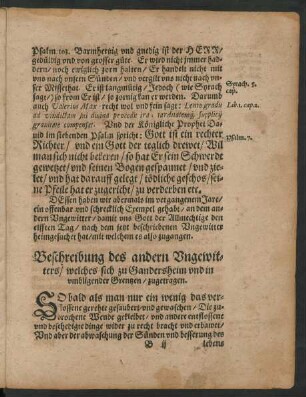 Psalm. 103. Barmhertzig vnd gnedig ist der HERR/
gedüldig vnd von grosser güte. Er wird nicht jmmer had-
dern/ noch ewiglich zorn halten/ Er handelt nicht mit
vns nach vnsern Sünden/ vnd vergilt vns nicht nach vn-
ser Missethat. Er ist langmütig/ Jedoch (wie Syrach
sage/) so from Er ist/ so zornig kan er werden. Darumb
auch Valerius Max: recht wol vnd fein sagt: Lento gradu
ad vindictam sui diuina procedit ira. tarditatemq; supplicij
grauitate compensat. Vnd der Königliche Prophet Da-
uid im siebenden Psalm spricht: Gott ist ein rechter
Richter/ vnd ein Gott der teglich drewet/ Wil
man sich nicht bekeren/ so hat Er sein Schwerdt
gewetzet/ vnd seinen Bogen gespannet/ vnd zie-
let/ vnd hat darauff gelegt/ tödtliche geschos/ sei-
ne Pfeile hat er zugericht/ zu verderben etc.
Syrach. 5.
cap.
Lib. 1. cap. 2.
Psalm. 7.
Dessen haben wir abermals im vergangenem Jare/
ein offenbar vnd schrecklich Exempel gehabt/ an dem an-
dern Vngewitter/ damit vns Gott der Allmechtige den
eilfften Tag/ nach dem jetzt beschriebenen Vngewitter
heimgesuchet hat/ mit welchem es also zugangen.
Beschreibung des andern Vngewit-
ters/ welches sich zu Gandersheim vnd in
vmbligender Grentzen/ zugetragen.
SO bald als man nur ein wenig das ver-
flossene gerehte gesaubert vnd gewaschen/ Die zu-
brochene Wende gekleibet/ vnd andere entflossene
vnd beschedigte dinge wider zu recht bracht vnd erbawet/
Vnd aber der abwaschung der Sünden vnd besserung des
B ij
lebens